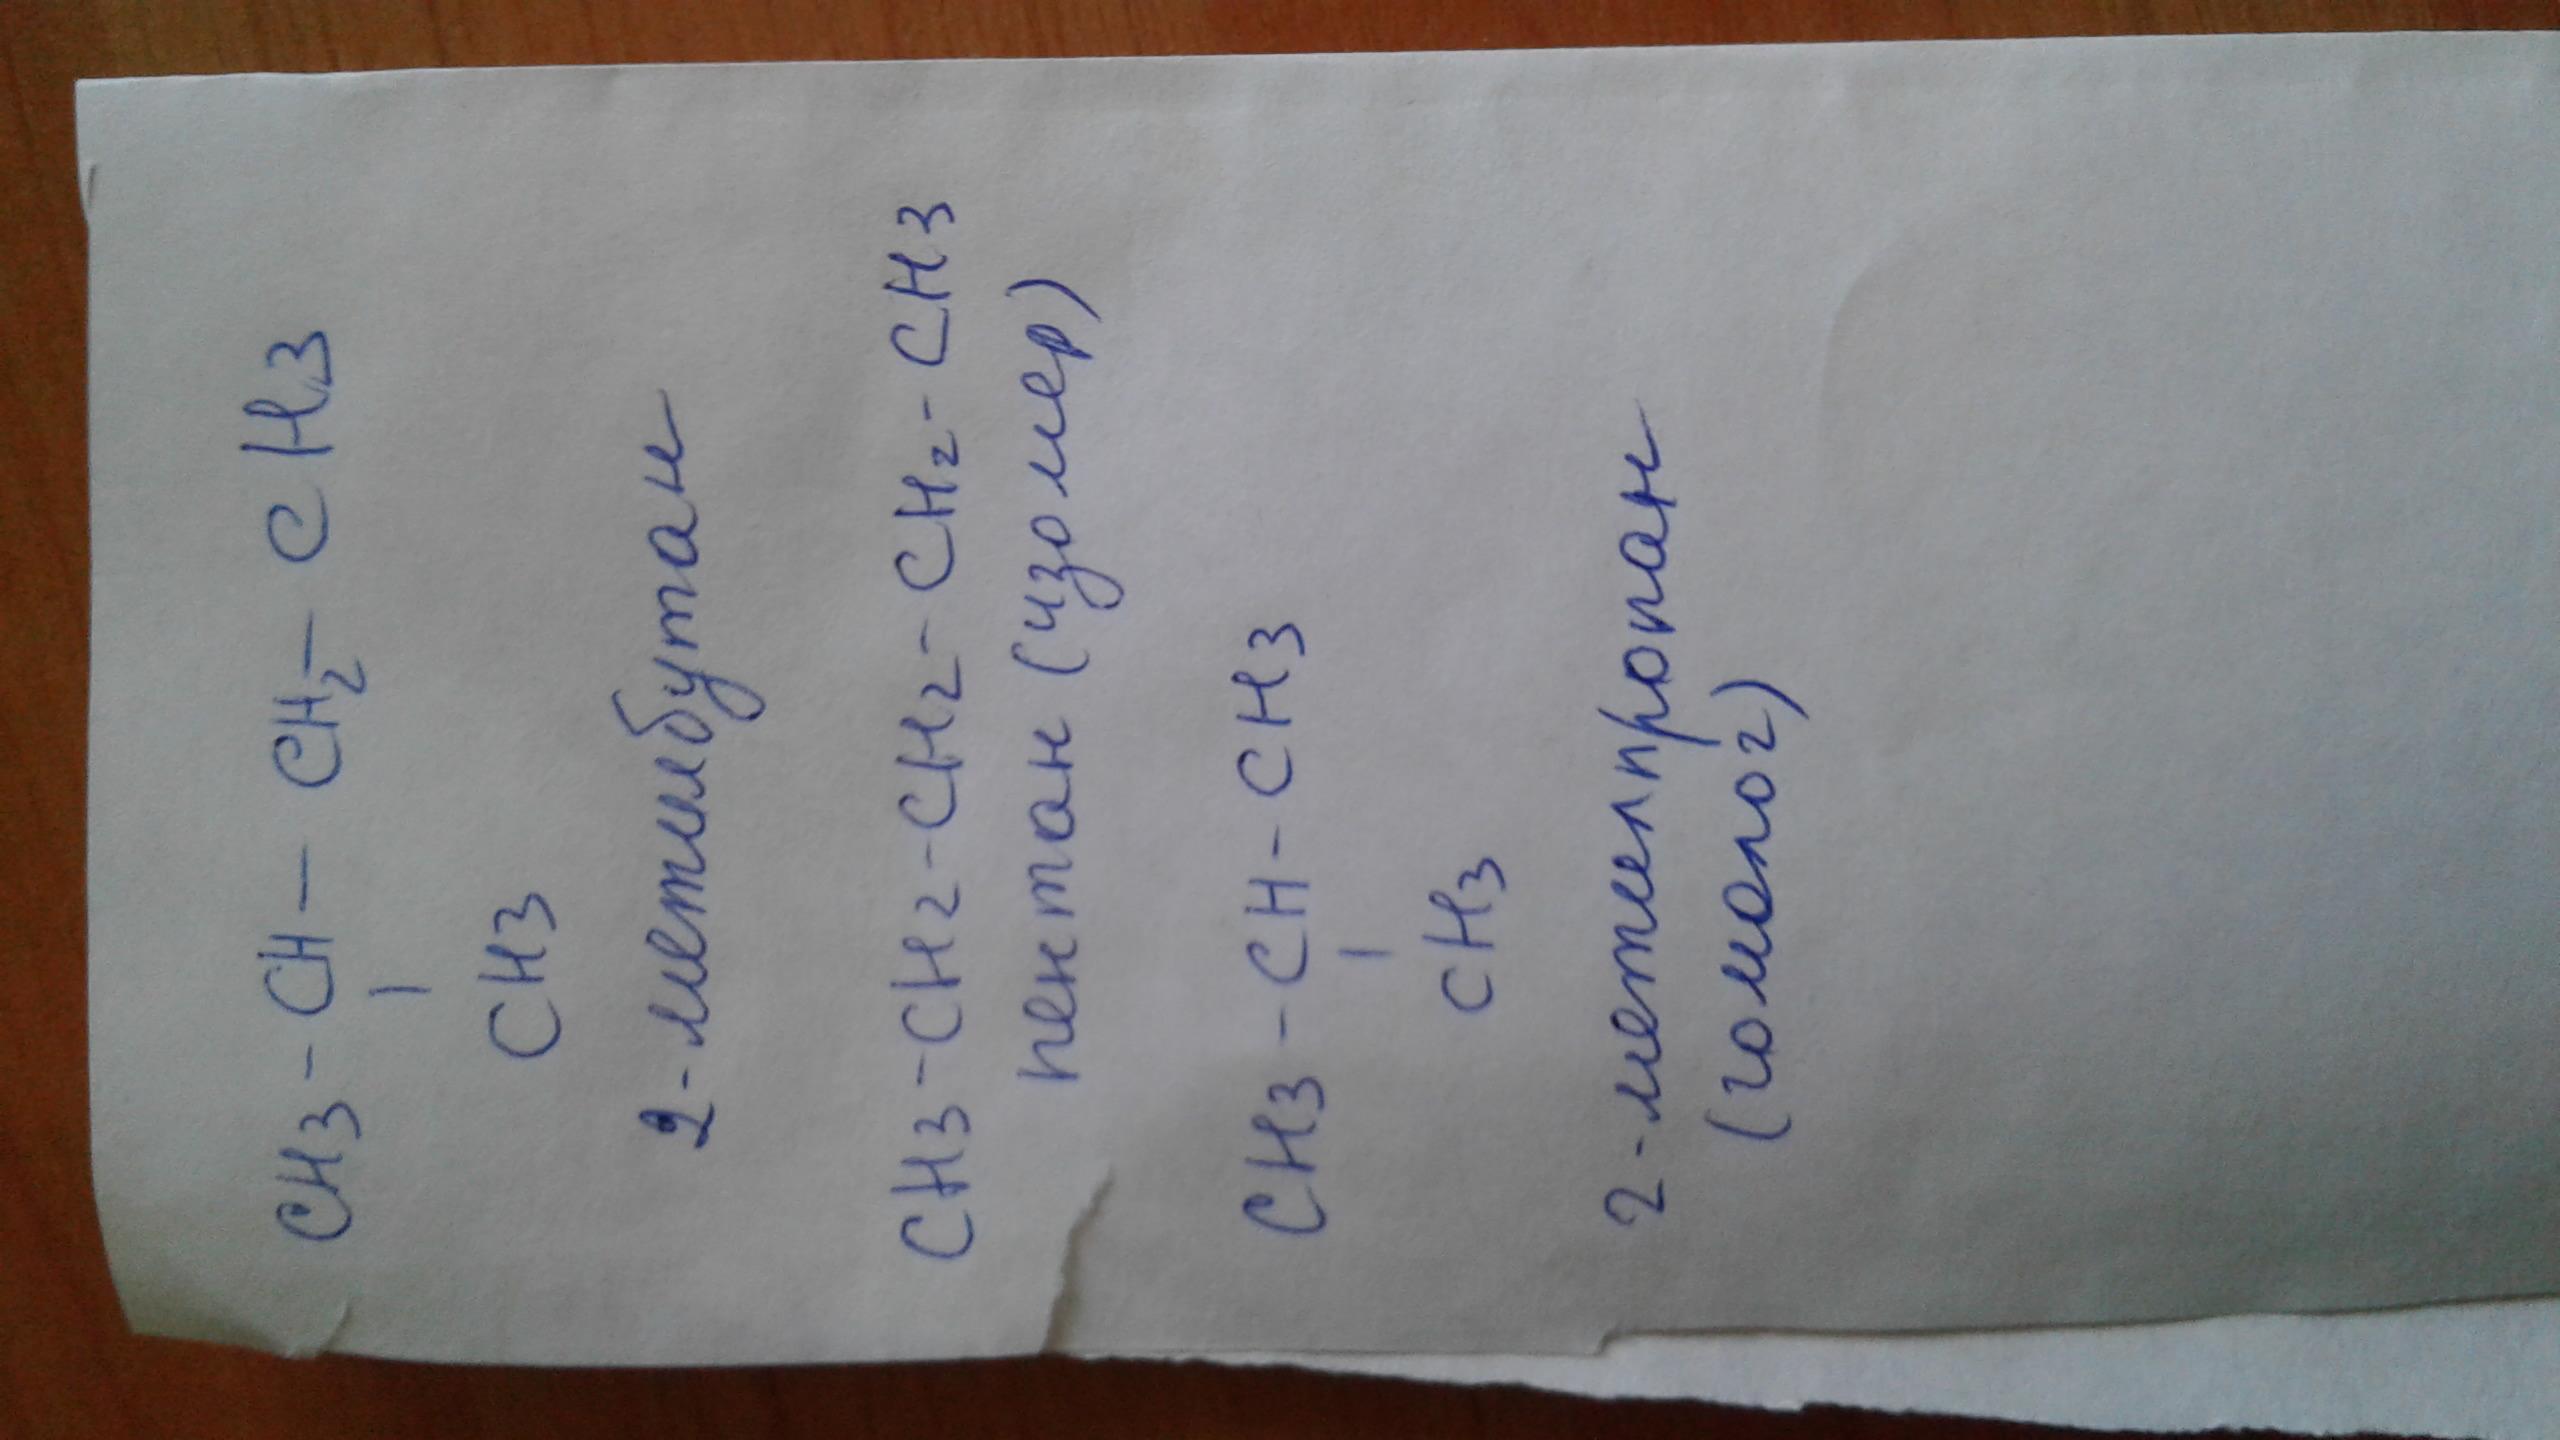 CH3 - CH - CH2 - CH3
|
CH3
2-метилбутан
CH3-CH2-CH2-CH2-CH2-CH3
пентан (изомер)
CH3-CH-CH3
|
CH3
2-метилпропан
(гомолог)